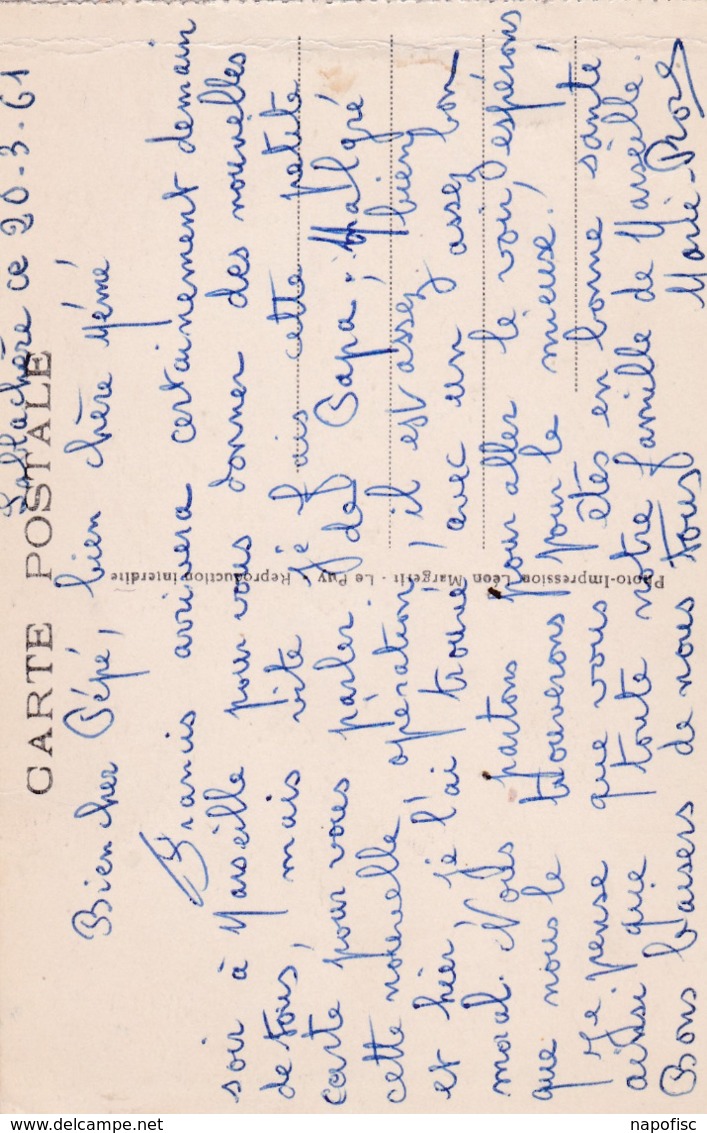 Lablachère ce 20-3-61
CARTE POSTALE
Bien cher Pépé, bien chère Mémé
Francis arrivera certainement demain
soir à Marseille pour vous donner des nouvelles
de tous, mais vite je fais cette petite
carte pour vous parler de Papa. Malgré
cette nouvelle opération, il est assez bien
et hier, je l'ai trouvé avec un assez bon
moral. Nous partons pour aller le voir, espérons
que nous le trouverons pour le mieuse!
Je pense que vous êtes en bonne santé
ainsi que toute notre famille de Marseille.
Bons baisers de nous tous Marie-Rose
Photo-Impression Léon Margerit - Le Puy - Reproduction interdite
napofisc